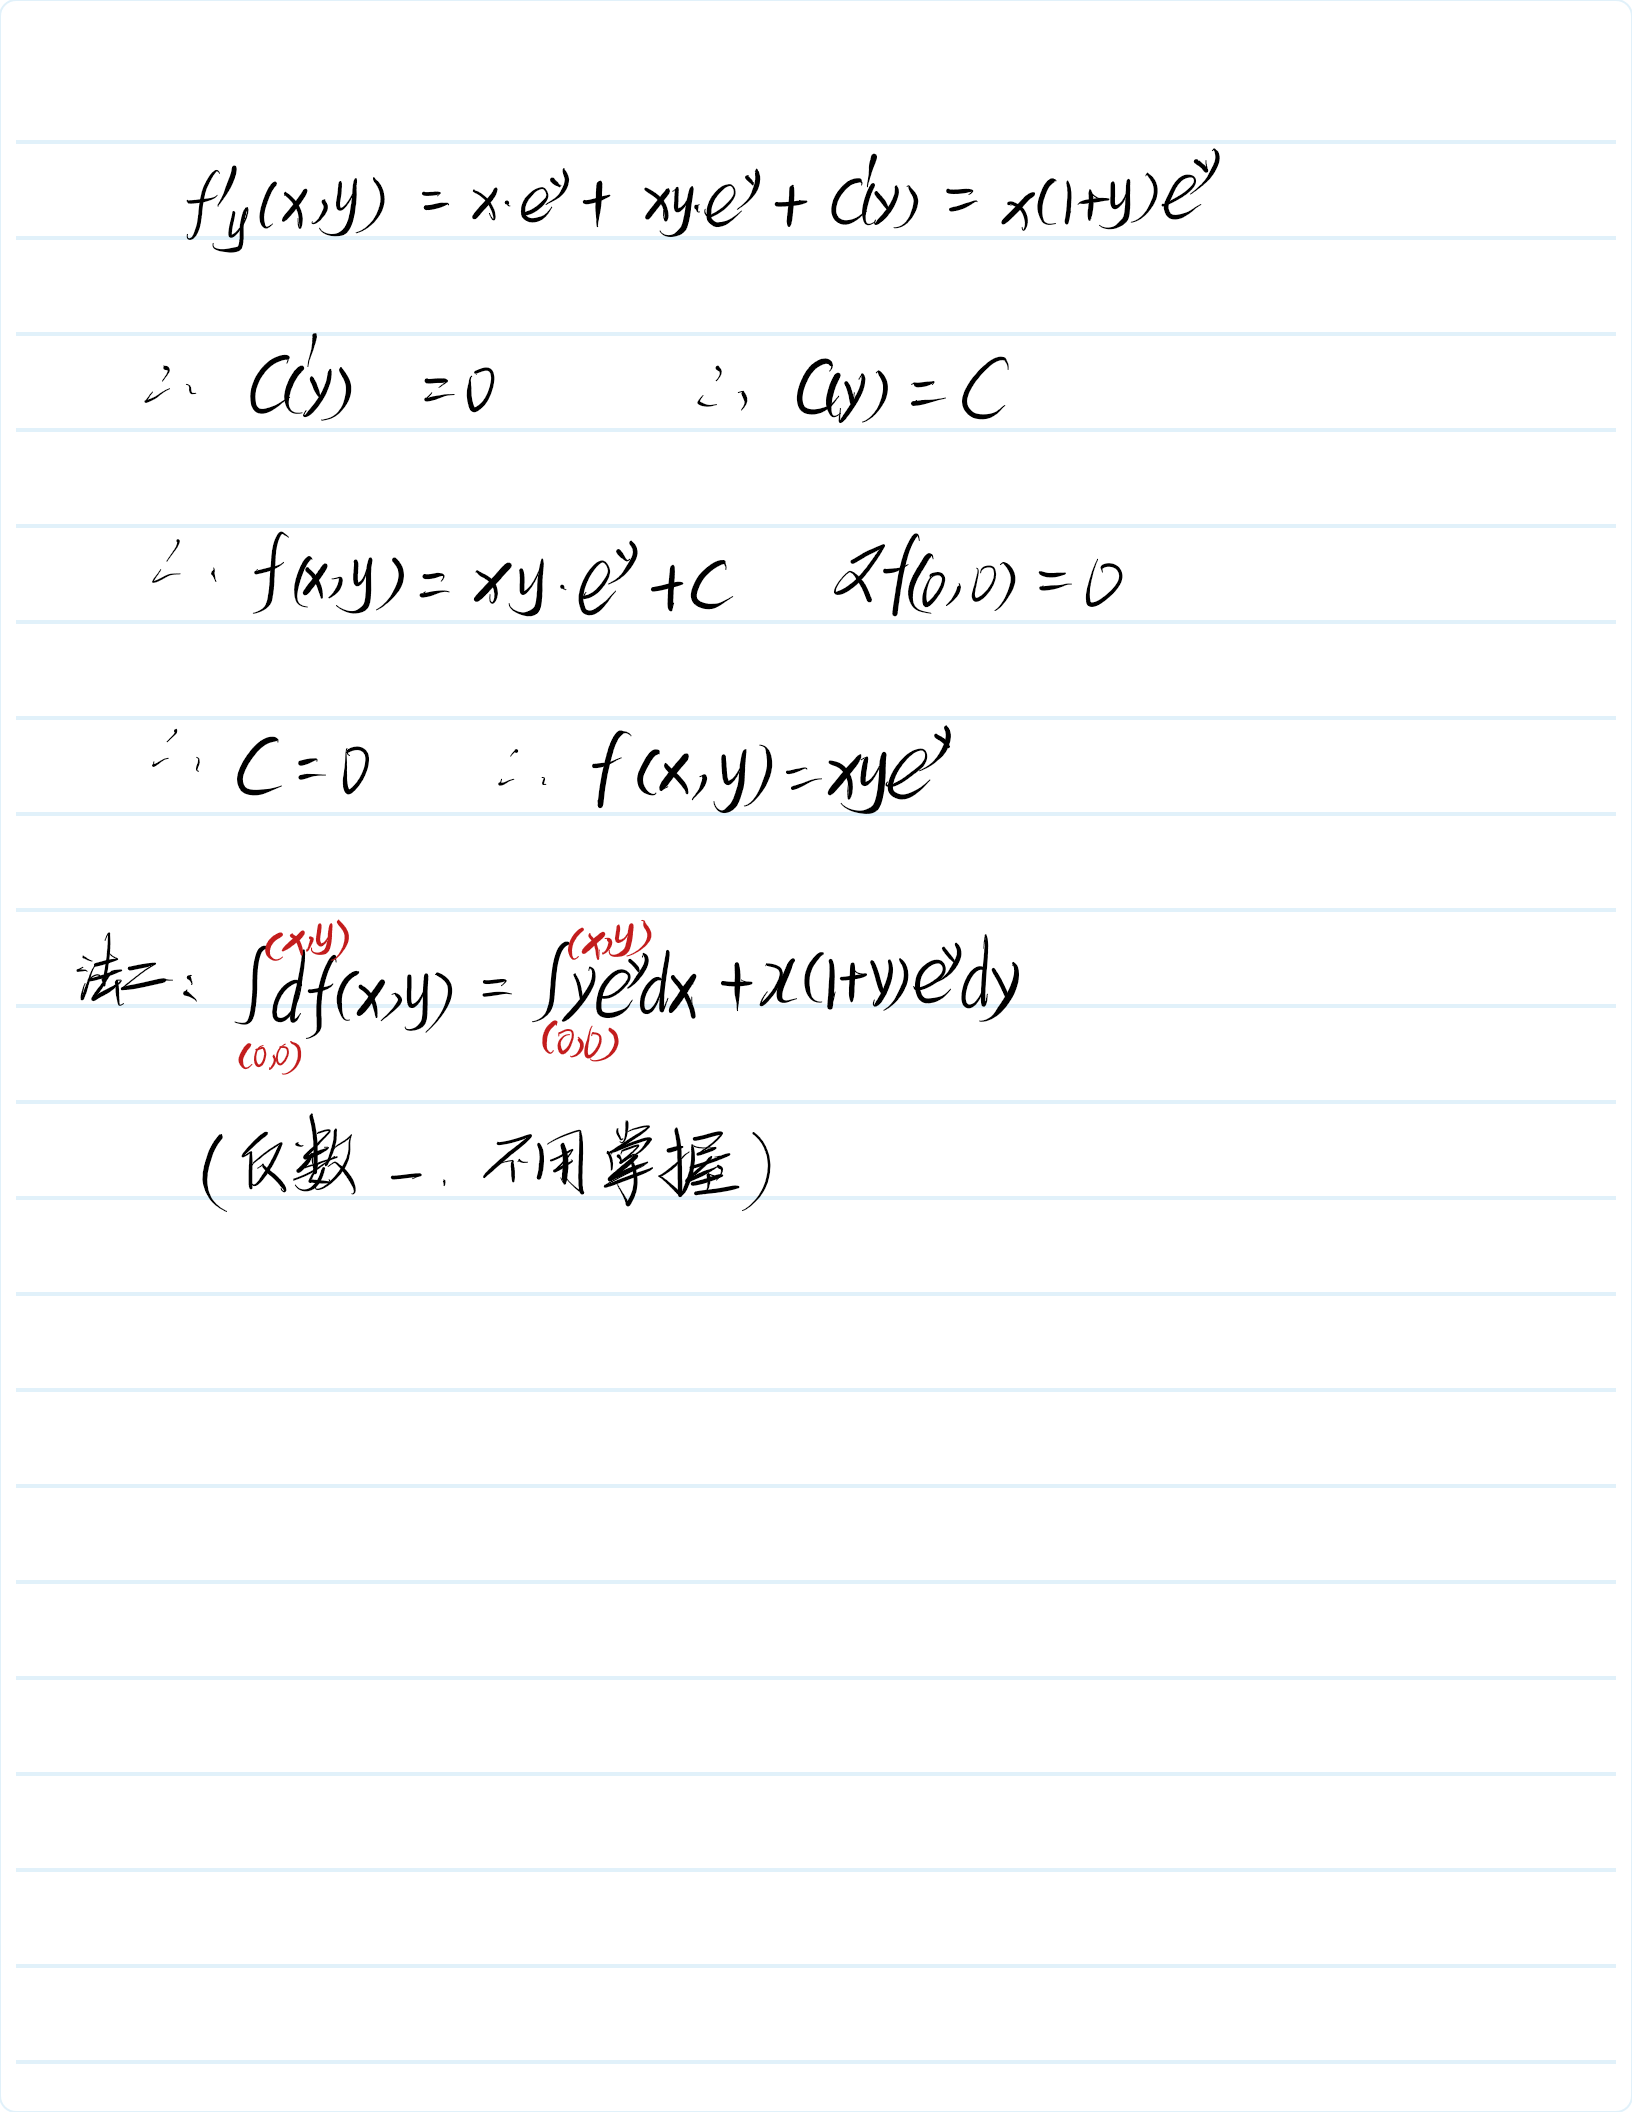 f'y(x,y) = x·e^y + xy·e^y + C'(y) = x(1+y)e^y
∴ C'(y) = 0 ∴ C(y) = C
∴ f(x,y) = xy·e^y + C 又f(0,0) = 0
∴ C = 0 ∴ f(x,y) = xye^y
法二: ∫_(0,0)^(x,y) df(x,y) = ∫_(0,0)^(x,y) ye^y dx + x(1+y)e^y dy
(仅数一. 不用掌握)